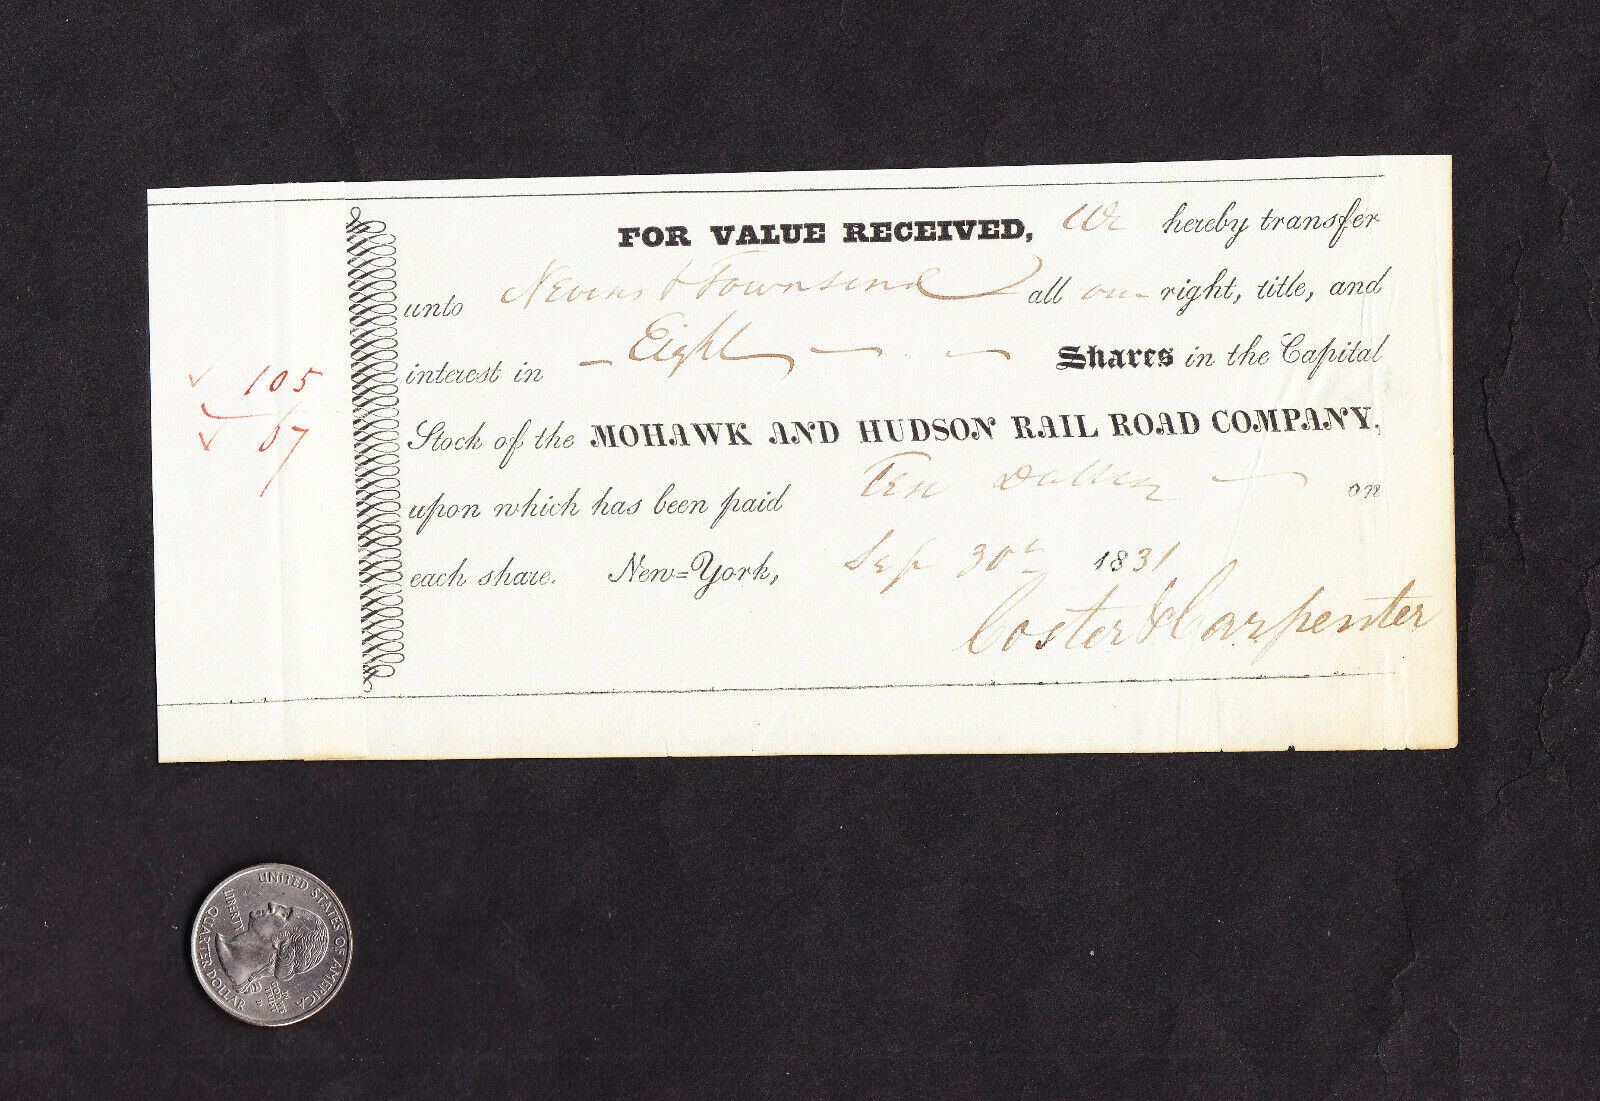 FOR VALUE RECEIVED, We hereby transfer
unto Nevins & Townsend all our right, title, and
interest in — Eight — — Shares in the Capital
Stock of the MOHAWK AND HUDSON RAIL ROAD COMPANY,
upon which has been paid Ten Dollars — on
each share. New=York, Sep 30th 1831
Coster & Carpenter
✓ 105
✓ 67
UNITED STATES OF AMERICA
LIBERTY
IN GOD WE TRUST
D
QUARTER DOLLAR